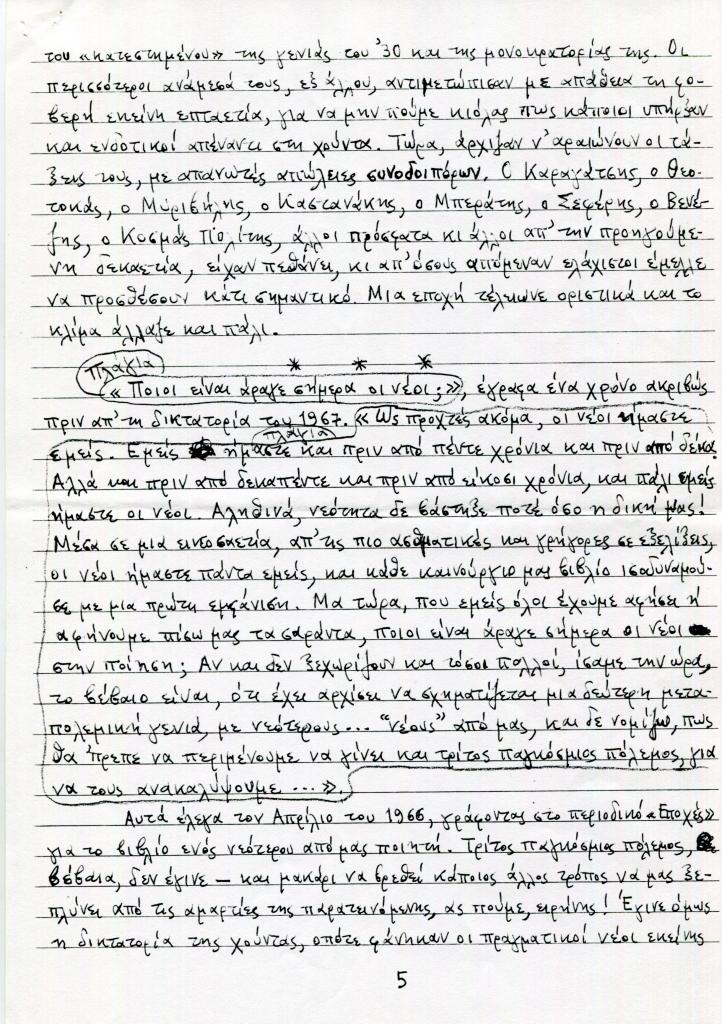 του «κατεστημένου» της γενιάς του '30 και της μονοκρατορίας της. Οι
περισσότεροι ανάμεσά τους, εξ άλλου, αντιμετώπισαν με απάθεια τη φο-
βερή εκείνη επταετία, για να μην πούμε κιόλας πως κάποιοι υπήρξαν
και ενδοτικοί απέναντι στη χούντα. Τώρα, άρχιζαν ν' αραιώνουν οι τά-
ξεις τους, με απανωτές απώλειες συνοδοιπόρων. Ο Καραγάτσης, ο Θεο-
τοκάς, ο Μυριβήλης, ο Καστανάκης, ο Μπεράτης, ο Σεφέρης, ο Βενέ-
ζης, ο Κοσμάς Πολίτης, άλλοι πρόσφατα κι άλλοι απ' την προηγούμε-
νη δεκαετία, είχαν πεθάνει, κι απ' όσους απόμεναν ελάχιστοι έμελλε
να προσθέσουν κάτι σημαντικό. Μια εποχή τέλειωνε οριστικά και το
κλίμα άλλαξε και πάλι.
* * *
πλάγια
«Ποιοι είναι άραγε σήμερα οι νέοι;», έγραφα ένα χρόνο ακριβώς
πριν απ' τη δικτατορία του 1967. «Ως προχτές ακόμα, οι νέοι ήμαστε
πλάγια
εμείς. Εμείς ήμαστε και πριν από πέντε χρόνια και πριν από δέκα.
Αλλά και πριν από δεκαπέντε και πριν από είκοσι χρόνια, και πάλι εμείς
ήμαστε οι νέοι. Αληθινά, νεότητα δε βάστηξε ποτέ όσο η δική μας!
Μέσα σε μια εικοσαετία, απ' τις πιο ασθματικές και γρήγορες σε εξελίξεις,
οι νέοι ήμαστε πάντα εμείς, και κάθε καινούργιο μας βιβλίο ισοδυναμού-
σε με μια πρώτη εμφάνιση. Μα τώρα, που εμείς όλοι έχουμε αφήσει ή
αφήνουμε πίσω μας τα σαράντα, ποιοι είναι άραγε σήμερα οι νέοι
στην ποίηση; Αν και δεν ξεχωρίζουν και τόσοι πολλοί, ίσαμε την ώρα,
το βέβαιο είναι, ότι έχει αρχίσει να σχηματίζεται μια δεύτερη μετα-
πολεμική γενιά, με νεότερους... “νέους” από μας, και δε νομίζω, πως
θα 'πρεπε να περιμένουμε να γίνει και τρίτος παγκόσμιος πόλεμος, για
να τους ανακαλύψουμε...».
Αυτά έλεγα τον Απρίλιο του 1966, γράφοντας στο περιοδικό «Εποχές»
για το βιβλίο ενός νεότερου από μας ποιητή. Τρίτος παγκόσμιος πόλεμος,
βέβαια, δεν έγινε – και μακάρι να βρεθεί κάποιος άλλος τρόπος να μας ξε-
πλύνει από τις αμαρτίες της παρατεινόμενης, ας πούμε, ειρήνης! Έγινε όμως
η δικτατορία της χούντας, οπότε φάνηκαν οι πραγματικοί νέοι εκείνης
5